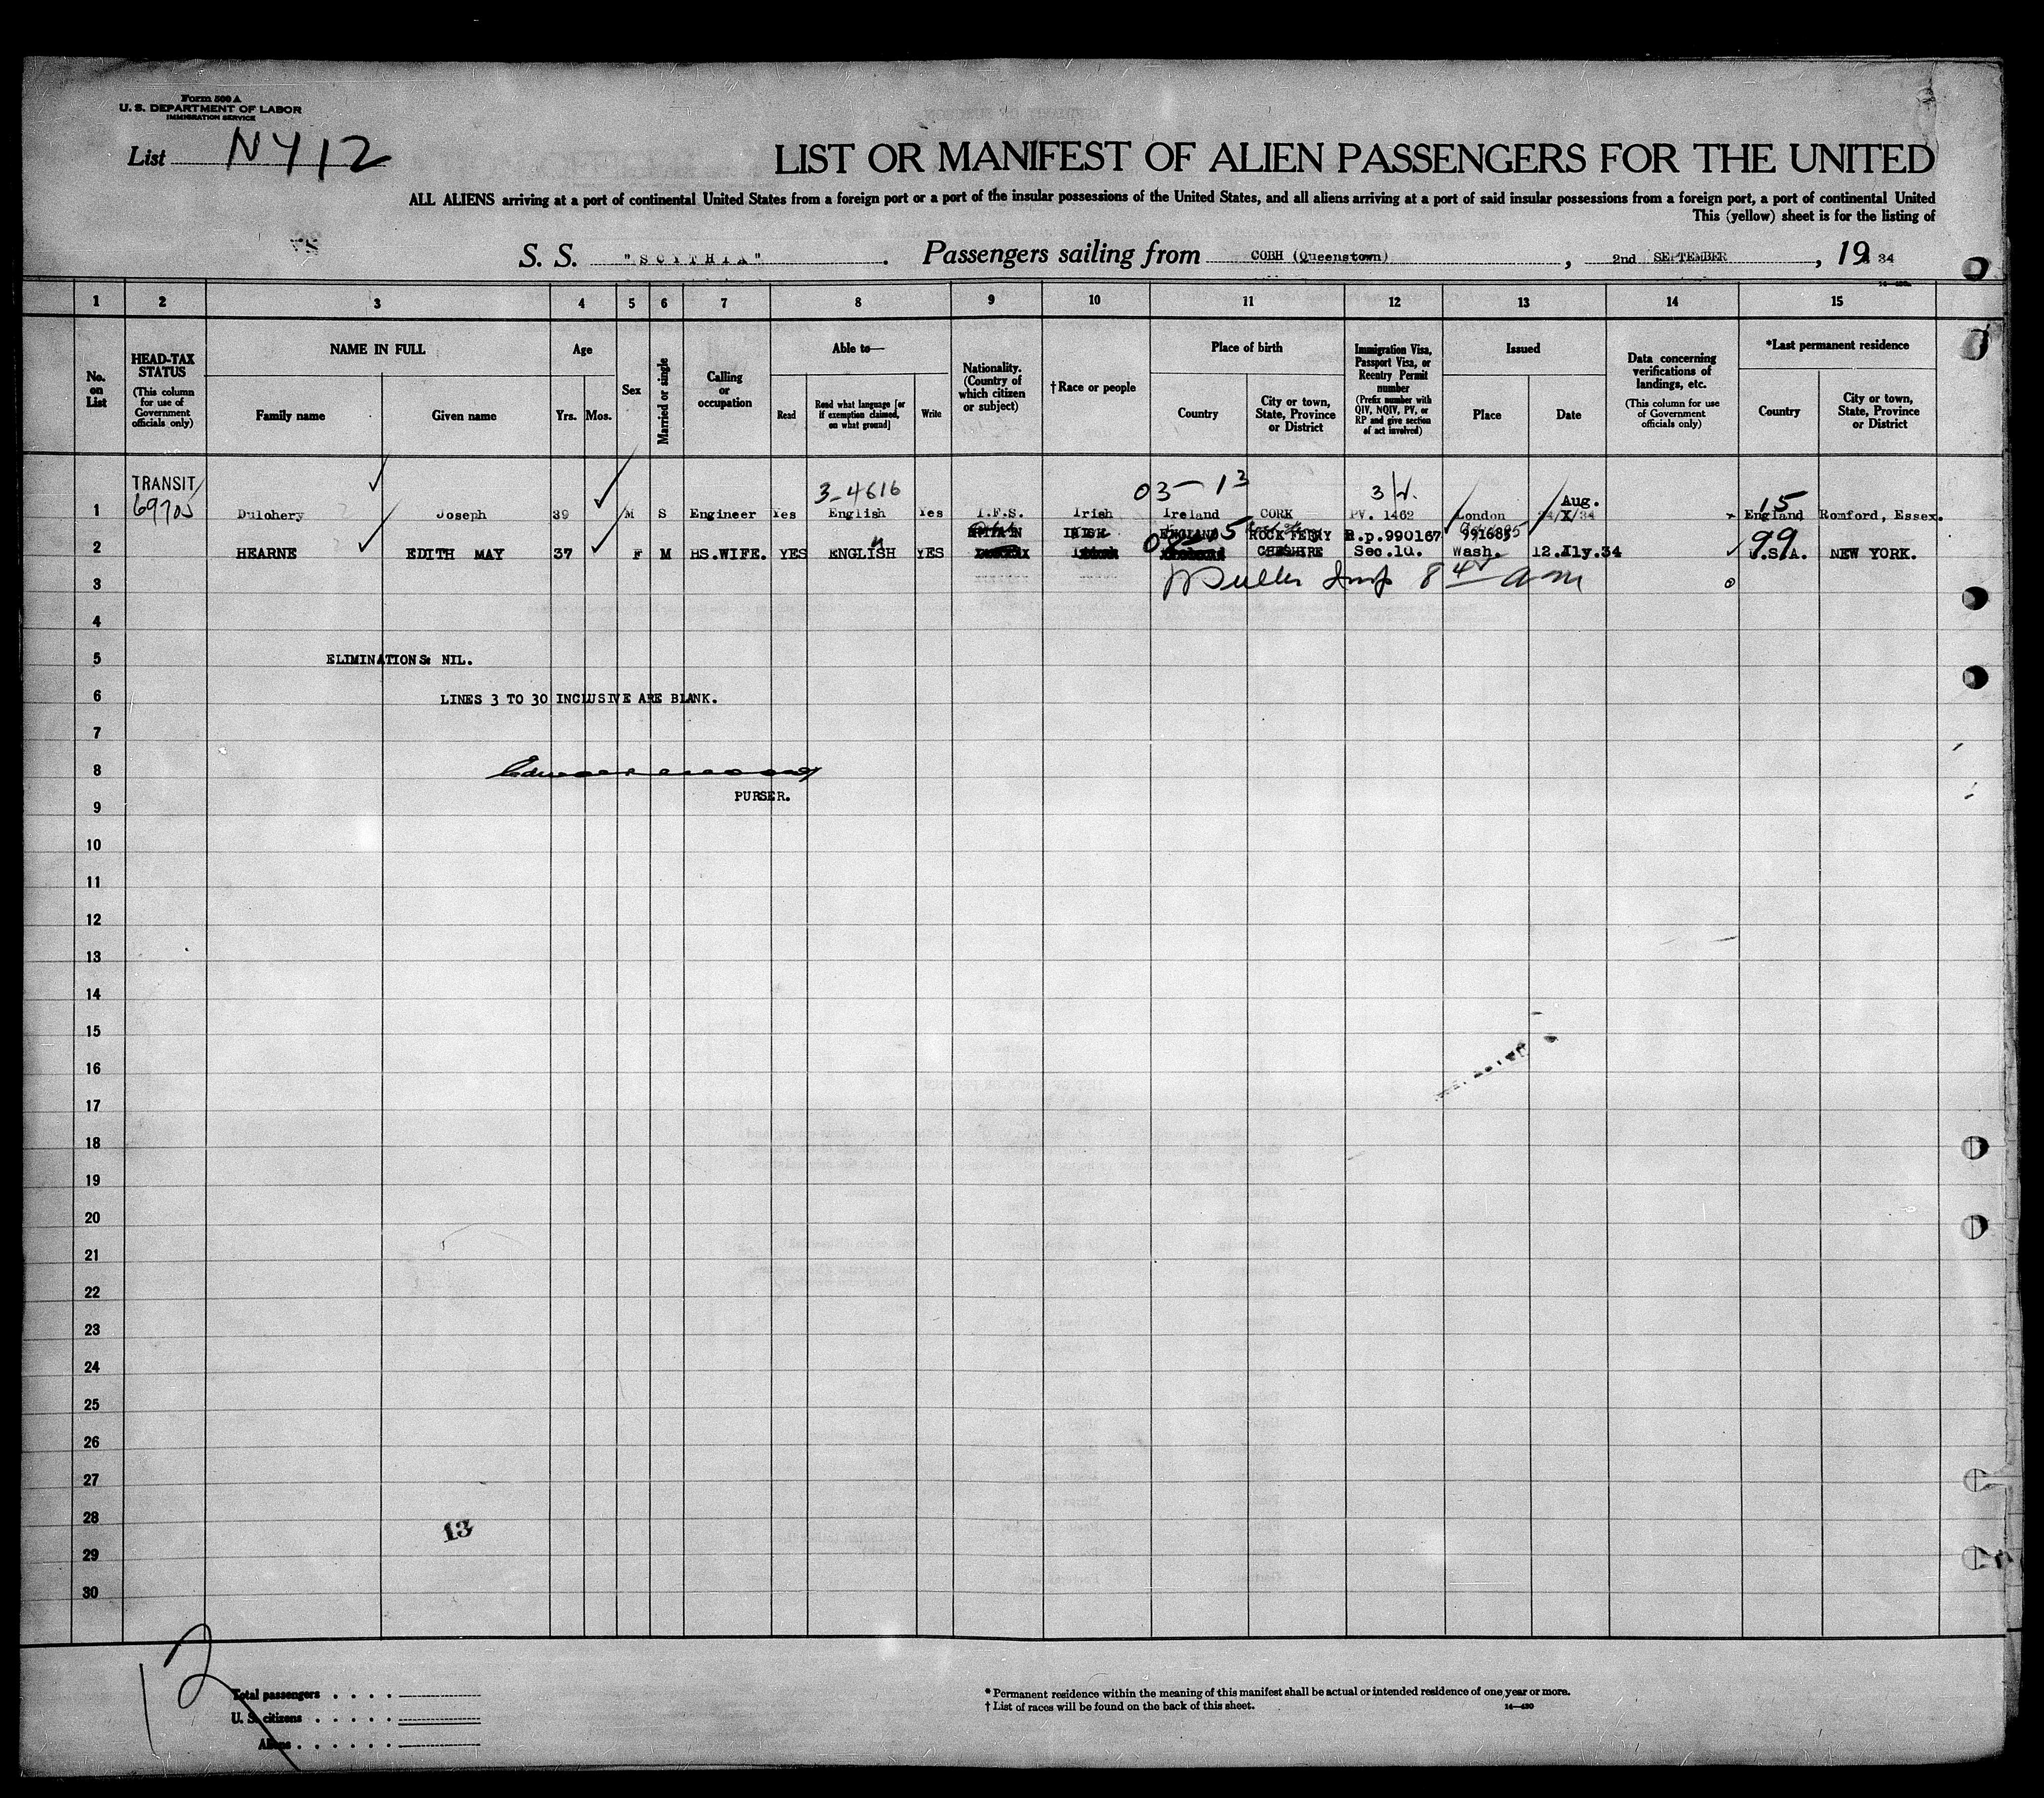 Form 500 A
U. S. DEPARTMENT OF LABOR
IMMIGRATION SERVICE
List NY 12
LIST OR MANIFEST OF ALIEN PASSENGERS FOR THE UNITED
ALL ALIENS arriving at a port of continental United States from a foreign port or a port of the insular possessions of the United States, and all aliens arriving at a port of said insular possessions from a foreign port, a port of continental United
This (yellow) sheet is for the listing of
S. S. "SCYTHIA". Passengers sailing from COBH (Queenstown), 2nd SEPTEMBER, 19 34
1 2 3 4 5 6 7 8 9 10 11 12 13 14 15
No. on List
HEAD-TAX STATUS
(This column for use of Government officials only)
NAME IN FULL
Family name
Given name
Age
Yrs.
Mos.
Sex
Married or single
Calling or occupation
Able to—
Read
Read what language [or if exemption claimed, on what ground]
Write
Nationality. (Country of which citizen or subject)
†Race or people
Place of birth
Country
City or town, State, Province or District
Immigration Visa, Passport Visa, or Reentry Permit number
(Prefix number with QIV, NQIV, PV, or RP and give section of act involved)
Issued
Place
Date
Data concerning verifications of landings, etc.
(This column for use of Government officials only)
*Last permanent residence
Country
City or town, State, Province or District
TRANSIT
3-4616
03-13
Aug.
15
1 Dulohery Joseph 39 M S Engineer Yes English Yes I.F.S. Irish Ireland CORK PV. 1462 London /34 England Romford, Essex.
ENGLAND ROCK FERRY R.p.990167 991685
99
2 HEARNE EDITH MAY 37 F M HS.WIFE. YES ENGLISH YES CHESHIRE Sec.10. Wash. 12.Jly.34 U.S.A. NEW YORK.
3
8 45 am
4
5 ELIMINATIONS: NIL.
6 LINES 3 TO 30 INCLUSIVE ARE BLANK.
7
8
9 PURSER.
10
11
12
13
14
15
16
17
18
19
20
21
22
23
24
25
26
27
28 13
29
30
12
Total passengers . . . .
U. S. citizens . . . . .
Aliens . . . . . .
* Permanent residence within the meaning of this manifest shall be actual or intended residence of one year or more.
† List of races will be found on the back of this sheet.
14—430